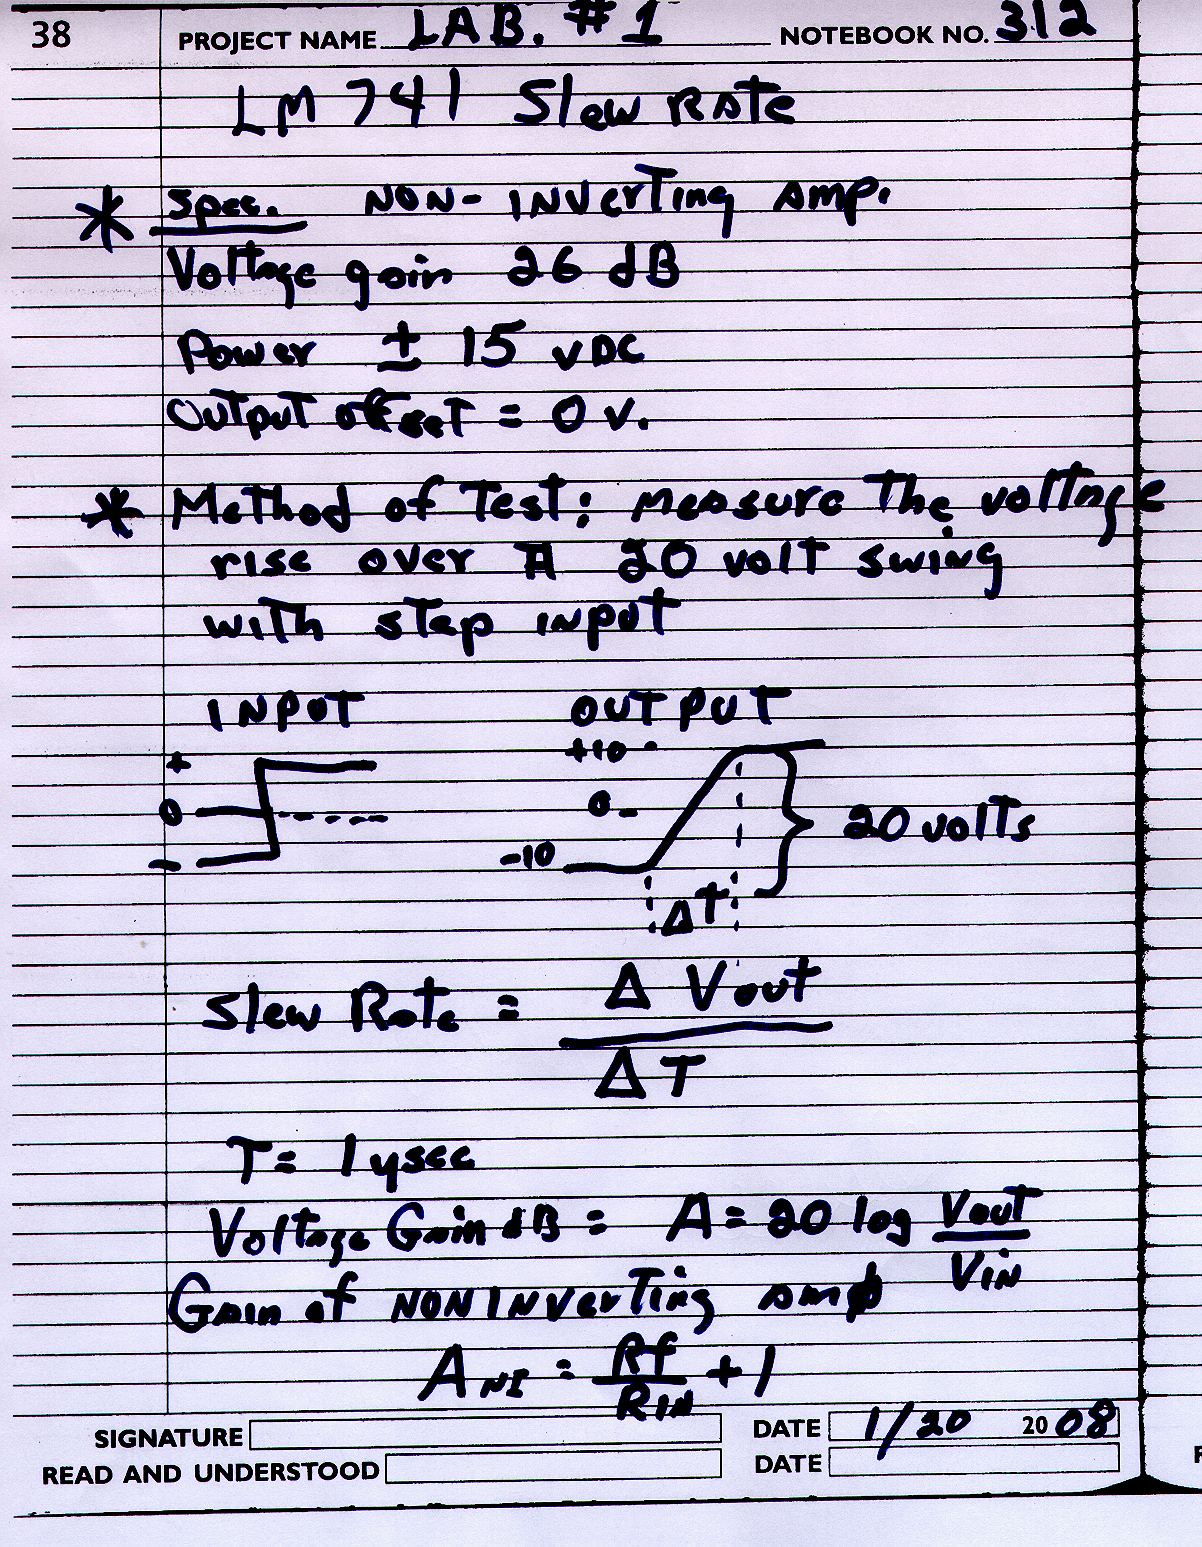 38 PROJECT NAME LAB. #1 NOTEBOOK NO. 312
LM 741 Slew Rate
* Spec. NON-INVerTing Amp.
Voltage gain 26 dB
Power ± 15 VDC
OutPut offset = 0 V.
* Method of Test: Measure The voltage
rise over A 20 volt swing
with step input
INPUT OUTPUT
+ +10
0 0
- -10 20 volts
ΔT
Slew Rate = Δ Vout
ΔT
T= 1 μsec
Voltage Gain dB = A = 20 log Vout
Vin
Gain of NONINVerTing amp
A NI = Rf + 1
RIN
SIGNATURE DATE 1/20 2008
READ AND UNDERSTOOD DATE